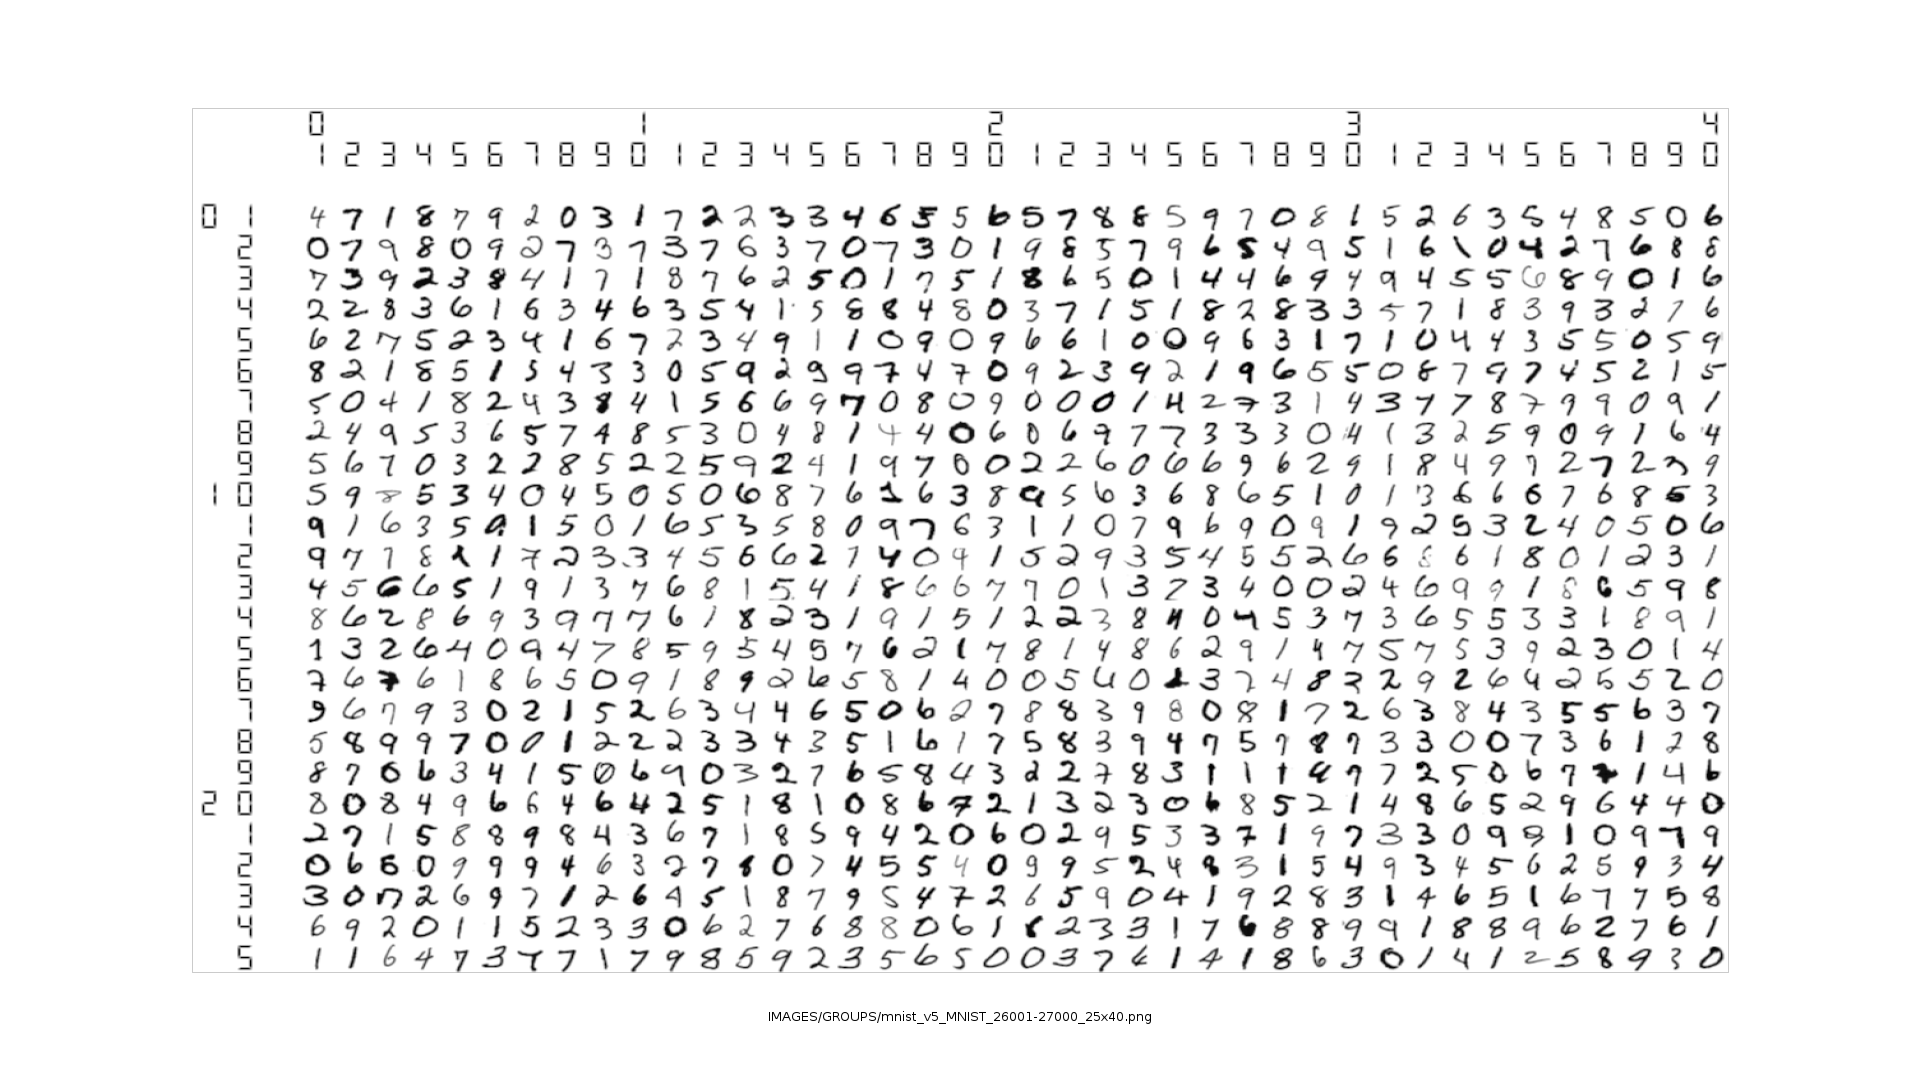 0 1 2 3 4
1 2 3 4 5 6 7 8 9 0 1 2 3 4 5 6 7 8 9 0 1 2 3 4 5 6 7 8 9 0 1 2 3 4 5 6 7 8 9 0
0 1 4 7 1 8 7 9 2 0 3 1 7 2 2 3 3 4 6 5 5 6 5 7 8 8 5 9 7 0 8 1 5 2 6 3 5 4 8 5 0 6
2 0 7 9 8 0 9 2 7 3 7 3 7 6 3 7 0 7 3 0 1 9 8 5 7 9 6 5 4 9 5 1 6 1 0 4 2 7 6 8 8
3 7 3 9 2 3 8 4 1 7 1 8 7 6 2 5 0 1 7 5 1 8 6 5 0 1 4 4 6 9 4 9 4 5 5 6 8 9 0 1 6
4 2 2 8 3 6 1 6 3 4 6 3 5 4 1 5 8 8 4 8 0 3 7 1 5 1 8 2 8 3 3 5 7 1 8 3 9 3 2 7 6
5 6 2 7 5 2 3 4 1 6 7 2 3 4 9 1 1 0 9 0 9 6 6 1 0 0 9 6 3 1 7 1 0 4 4 3 5 5 0 5 9
6 8 2 1 8 5 1 5 4 3 3 0 5 9 2 9 9 7 4 7 0 9 2 3 9 2 1 9 6 5 5 0 8 7 9 7 4 5 2 1 5
7 5 0 4 1 8 2 4 3 8 4 1 5 6 6 9 7 0 8 0 9 0 0 0 1 4 2 7 3 1 4 3 7 7 8 7 9 9 0 9 1
8 2 4 9 5 3 6 5 7 4 8 5 3 0 4 8 1 4 4 0 6 0 6 9 7 7 3 3 3 0 4 1 3 2 5 9 0 9 1 6 4
9 5 6 7 0 3 2 2 8 5 2 2 5 9 2 4 1 9 7 0 0 2 2 6 0 6 6 9 6 2 9 1 8 4 9 7 2 7 2 3 9
1 0 5 9 8 5 3 4 0 4 5 0 5 0 6 8 7 6 1 6 3 8 9 5 6 3 6 8 6 5 1 0 1 3 6 6 6 7 6 8 5 3
1 9 1 6 3 5 0 1 5 0 1 6 5 3 5 8 0 9 7 6 3 1 1 0 7 9 6 9 0 9 1 9 2 5 3 2 4 0 5 0 6
2 9 7 7 8 1 1 7 2 3 3 4 5 6 6 2 7 4 0 4 1 5 2 9 3 5 4 5 5 2 6 6 8 6 1 8 0 1 2 3 1
3 4 5 6 6 5 1 9 1 3 7 6 8 1 5 4 1 8 6 6 7 7 0 1 3 7 3 4 0 0 2 4 6 9 9 1 8 6 5 9 8
4 8 6 2 8 6 9 3 9 7 7 6 1 8 2 3 1 9 1 5 1 2 2 3 8 4 0 4 5 3 7 3 6 5 5 3 3 1 8 9 1
5 1 3 2 6 4 0 9 4 7 8 5 9 5 4 5 7 6 2 1 7 8 1 4 8 6 2 9 1 4 7 5 7 5 3 9 2 3 0 1 4
6 7 6 7 6 1 8 6 5 0 9 1 8 9 2 6 5 8 1 4 0 0 5 4 0 1 3 7 4 8 2 2 9 2 6 4 2 5 5 2 0
7 9 6 7 9 3 0 2 1 5 2 6 3 4 4 6 5 0 6 2 7 8 8 3 9 8 0 8 1 7 2 6 3 8 4 3 5 5 6 3 7
8 5 8 9 9 7 0 0 1 2 2 2 3 3 4 3 5 1 6 1 7 5 8 3 9 4 7 5 7 8 7 3 3 0 0 7 3 6 1 2 8
9 8 7 0 6 3 4 1 5 0 6 9 0 3 2 7 6 5 8 4 3 2 2 7 8 3 1 1 1 4 9 7 2 5 0 6 7 7 1 4 6
2 0 8 0 8 4 9 6 6 4 6 4 2 5 1 8 1 0 8 6 7 2 1 3 2 3 0 6 8 5 2 1 4 8 6 5 2 9 6 4 4 0
1 2 7 1 5 8 8 9 8 4 3 6 7 1 8 5 9 4 2 0 6 0 2 9 5 3 3 7 1 9 7 3 3 0 9 9 1 0 9 7 9
2 0 6 5 0 9 9 9 4 6 3 2 7 8 0 7 4 5 5 4 0 9 9 5 2 4 8 3 1 5 4 9 3 4 5 6 2 5 9 3 4
3 3 0 7 2 6 9 7 1 2 6 4 5 1 8 7 9 5 4 7 2 6 5 9 0 4 1 9 2 8 3 1 4 6 5 1 6 7 7 5 8
4 6 9 2 0 1 1 5 2 3 3 0 6 2 7 6 8 8 0 6 1 8 2 3 3 1 7 6 8 8 9 9 1 8 8 9 6 2 7 6 1
5 1 1 6 4 7 3 7 7 1 7 9 8 5 9 2 3 5 6 5 0 0 3 7 6 1 4 1 8 6 3 0 1 4 1 2 5 8 9 3 0
IMAGES/GROUPS/mnist_v5_MNIST_26001-27000_25x40.png